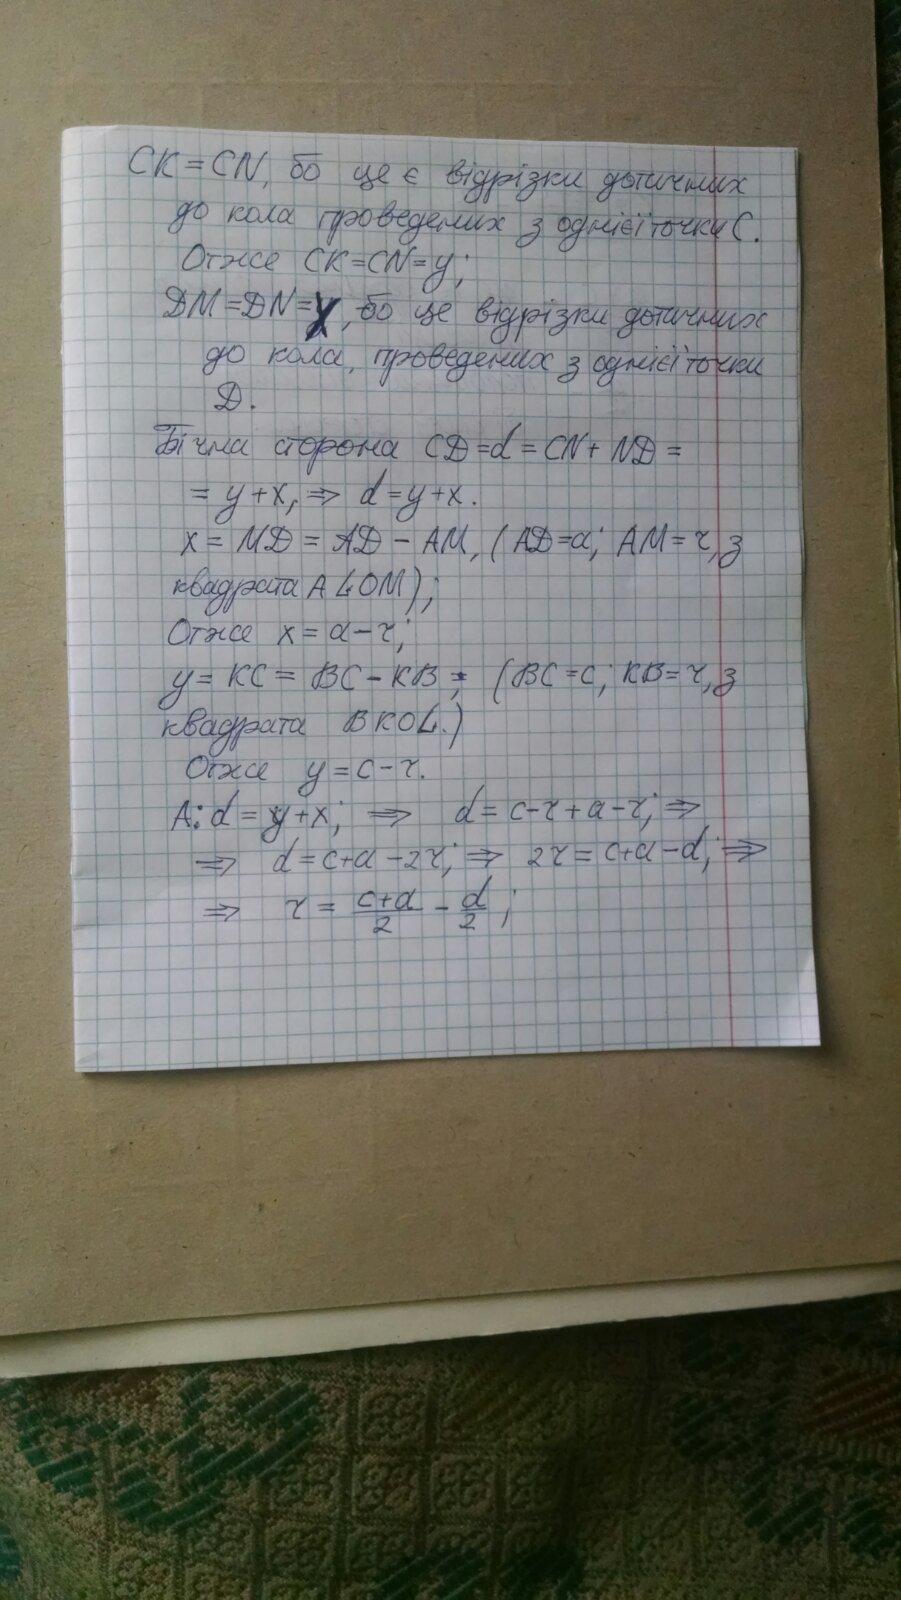 CK = CN, бо це є відрізки дотичних
до кола проведених з однієї точки C.
Отже CK=CN=y;
DM=DN=x, бо це відрізки дотичних
до кола, проведених з однієї точки
D.
Бічна сторона CD=d=CN+ND=
= y+x, ⇒ d=y+x.
x = MD = AD - AM, (AD=a; AM=r, з
квадрата ALOM);
Отже x = a-r;
y = KC = BC - KB; (BC=c; KB=r, з
квадрата BKOL.)
Отже y = c-r.
A: d = y+x; ⇒ d=c-r+a-r; ⇒
⇒ d=c+a-2r; ⇒ 2r=c+a-d; ⇒
⇒ r = (c+a)/2 - d/2;